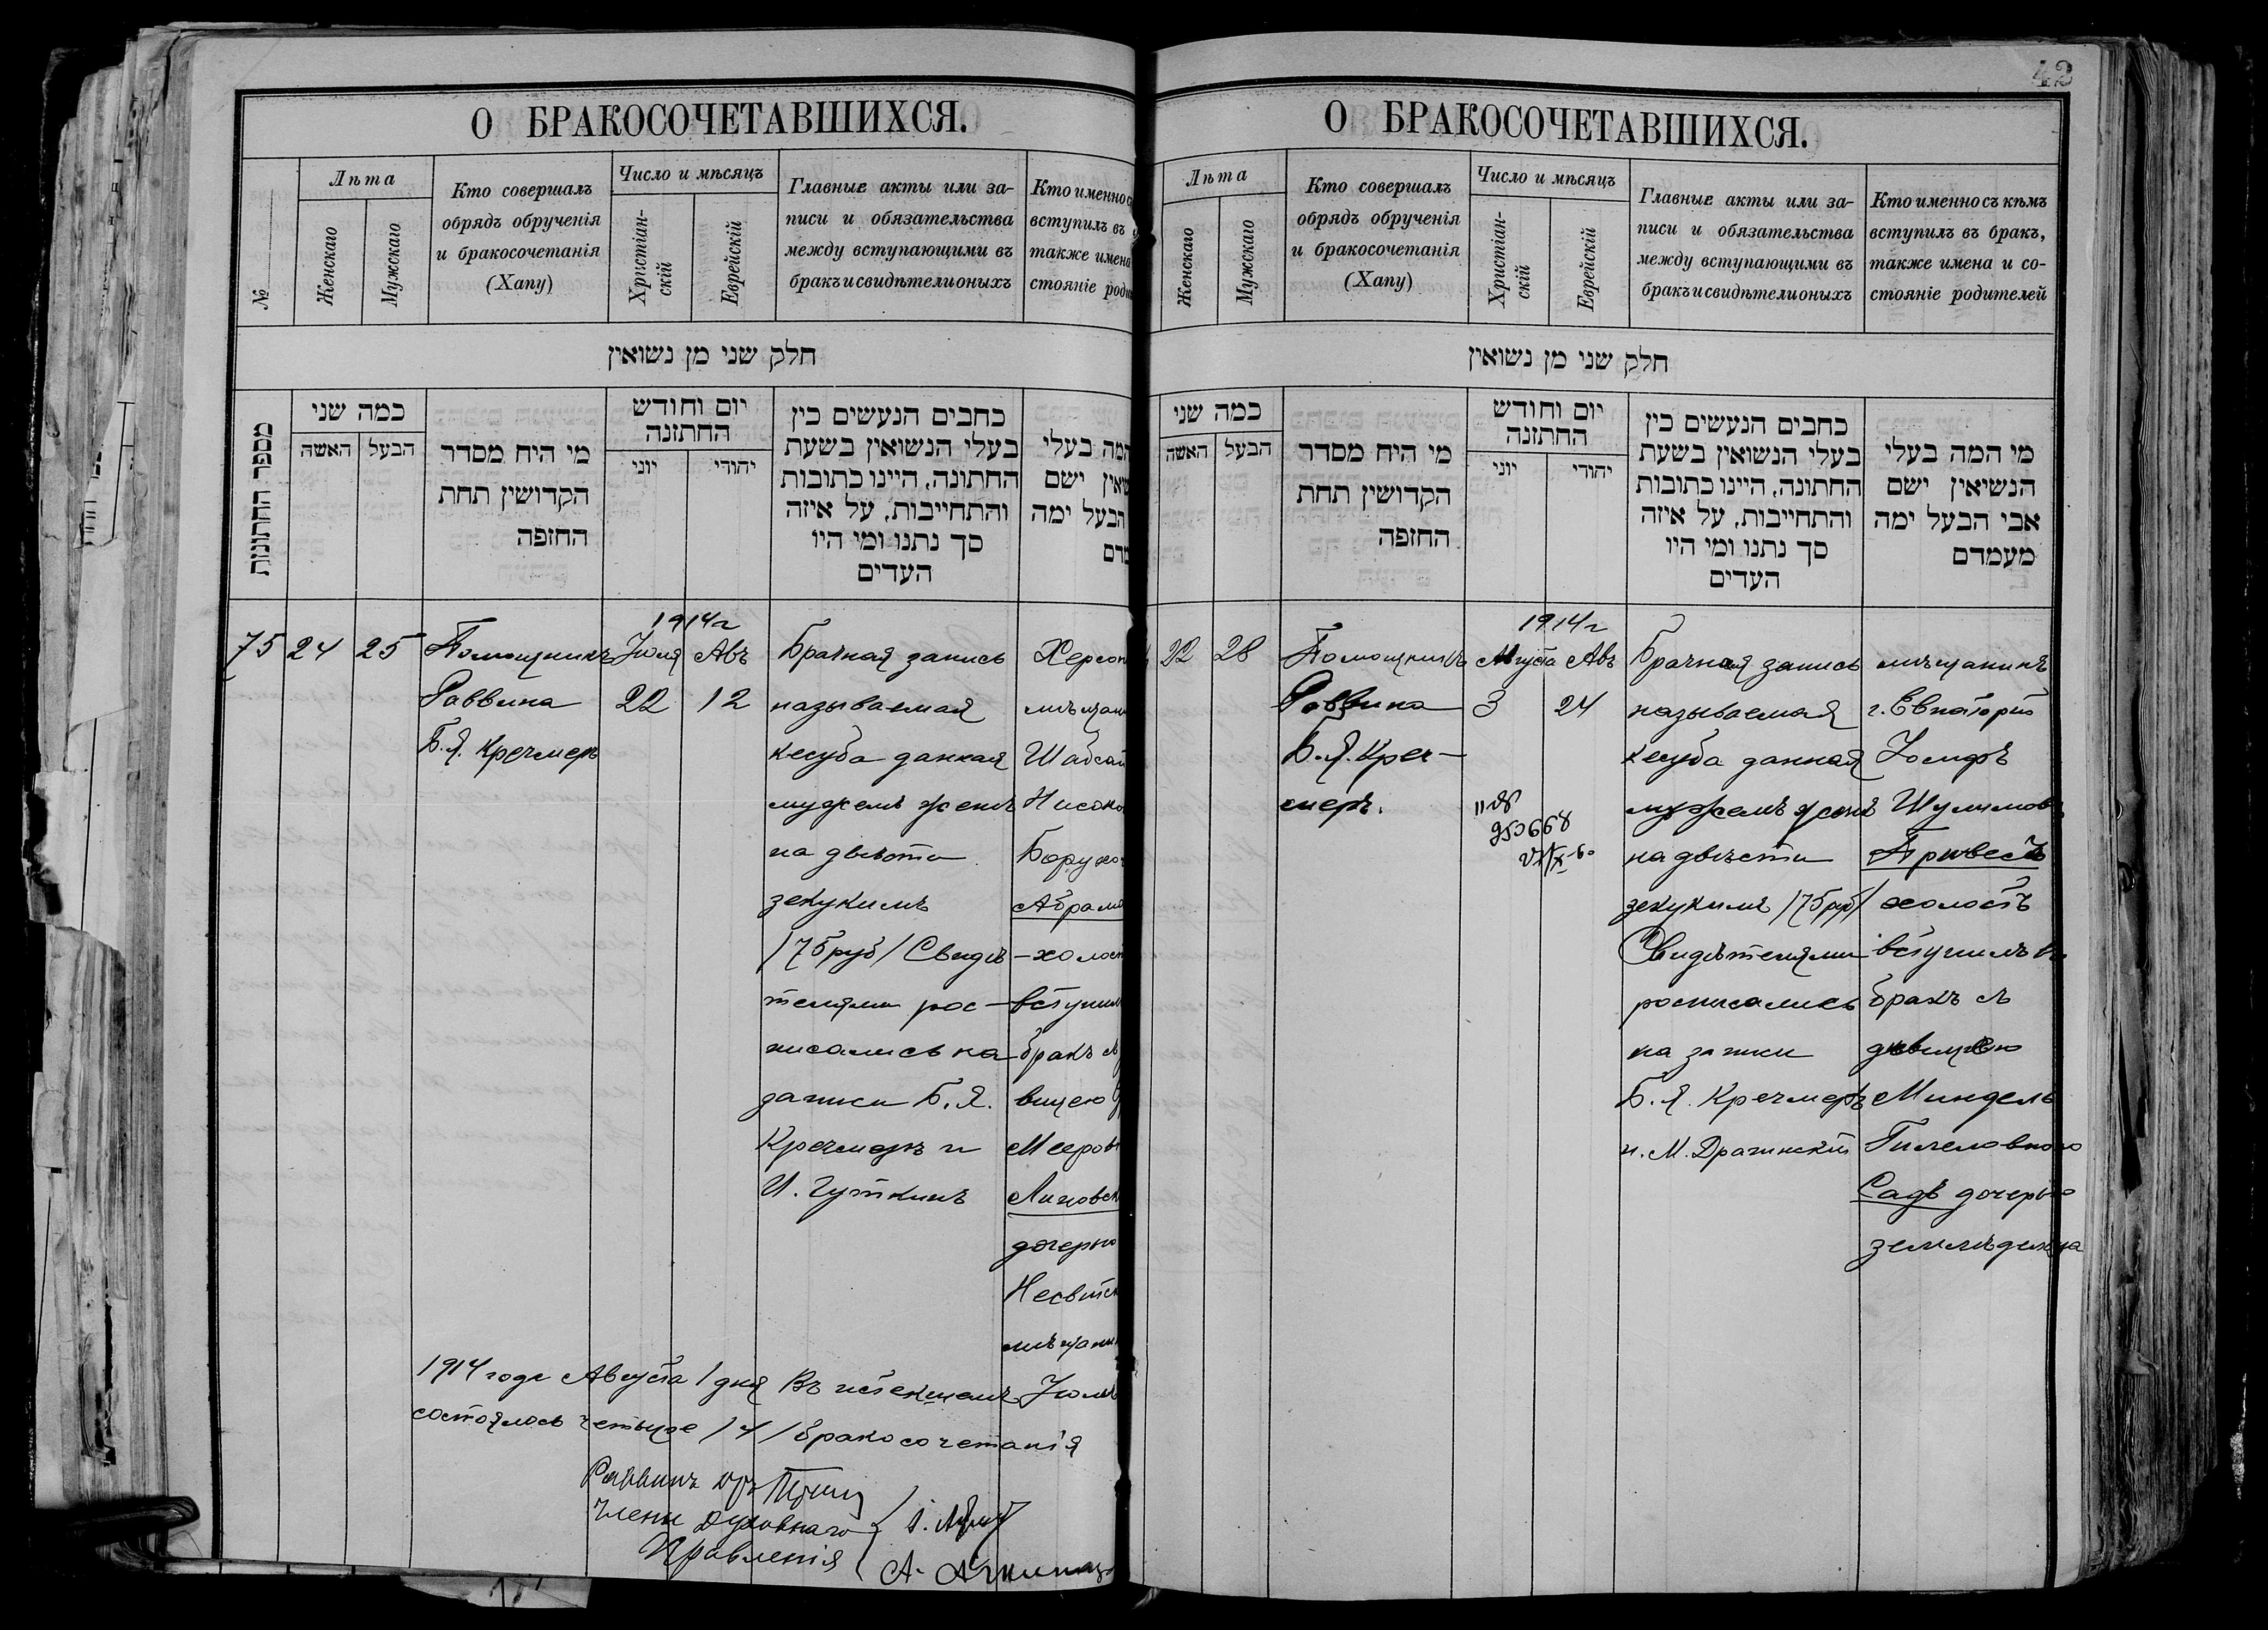 42
О БРАКОСОЧЕТАВШИХСЯ.
№
Лѣта
Женскаго
Мужскаго
Кто совершалъ
обрядъ обрученія
и бракосочетанія
(Хапу)
Число и мѣсяцъ
Христіан-
скій
Еврейскій
Главные акты или за-
писи и обязательства
между вступающими въ
бракъ и свидѣтели оныхъ
Кто именно
вступилъ въ
также имена
стояніе
חלק שני מן נשואין
מספר החתונות
כמה שני
האשה
הבעל
מי היח מסדר
הקדושין תחת
החזפה
יום וחודש
החתזנה
יוני
יהודי
כחבים הנעשים כין
בעלי הנשואין בשעת
החתונה, היינו כתובות
והתחייבות, על איזה
סך נתנו ומי היו
העדים
המה בעלי
ישם
הבעל ימה
75
24
25
Помощникъ
Раввина
Б.Я. Кречмеръ
1914 г
Іюля
22
Авъ
12
Брачная запись
называемая
кесуба данная
мужемъ женѣ
на двѣсти
зекукимъ
/75 руб/ Свидѣ
телями рос-
писались на
записи Б.Я.
Кречмеръ и
И. Гуткинъ
Херсон
мѣщан
Шабсай
Нисоно
Борухо
Абрамо
-холост
вступил
бракъ
вицею
Мееров
Линовск
дочерью
Несвиж
мѣщан
1914 года Августа 1 дня Въ истекшемъ Іюлѣ
состоялось четыре /4/ бракосочетанія
Раввинъ
Члены Духовнаго
Правленія
О БРАКОСОЧЕТАВШИХСЯ.
Лѣта
Женскаго
Мужскаго
Кто совершалъ
обрядъ обрученія
и бракосочетанія
(Хапу)
Число и мѣсяцъ
Христіан-
скій
Еврейскій
Главные акты или за-
писи и обязательства
между вступающими въ
бракъ и свидѣтели оныхъ
Кто именно съ кѣмъ
вступилъ въ бракъ,
также имена и со-
стояніе родителей
חלק שני מן נשואין
כמה שני
האשה
הבעל
מי היח מסדר
הקדושין תחת
החזפה
יום וחודש
החתזנה
יוני
יהודי
כחבים הנעשים כין
בעלי הנשואין בשעת
החתונה, היינו כתובות
והתחייבות, על איזה
סך נתנו ומי היו
העדים
מי המה בעלי
הנשיאין ישם
אבי הבעל ימה
מעמדם
22
28
Помощникъ
Раввина
Б.Я. Креч-
меръ.
1914 г
Августа
3
Авъ
24
Брачная запись
называемая
кесуба данная
мужемъ женѣ
на двѣсти
зекукимъ /75 руб/
Свидѣтелями
росписались
на записи
Б.Я. Кречмеръ
и М. Драгинскій
мѣщанинъ
г. Евпаторіи
Іосифъ
Шулимовъ
Привесъ
холостъ
вступилъ въ
бракъ съ
дѣвицею
Миндель
Садъ дочерью
земледѣльца